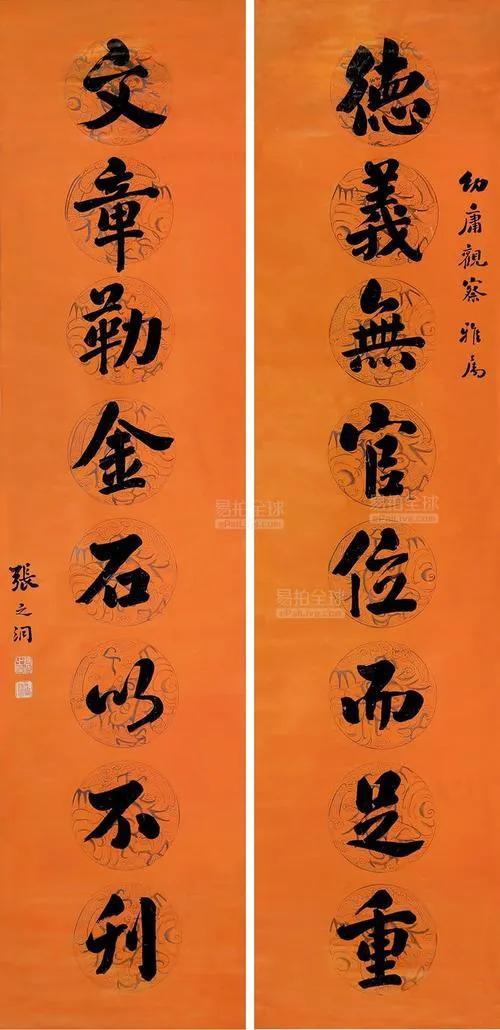 幼庸觀察雅屬
德義無官位而足重
文章勒金石以不刊
張之洞
易拍全球
ePaiLive.com
易拍全球
ePaiLive.com
易拍全球
ePaiLive.com